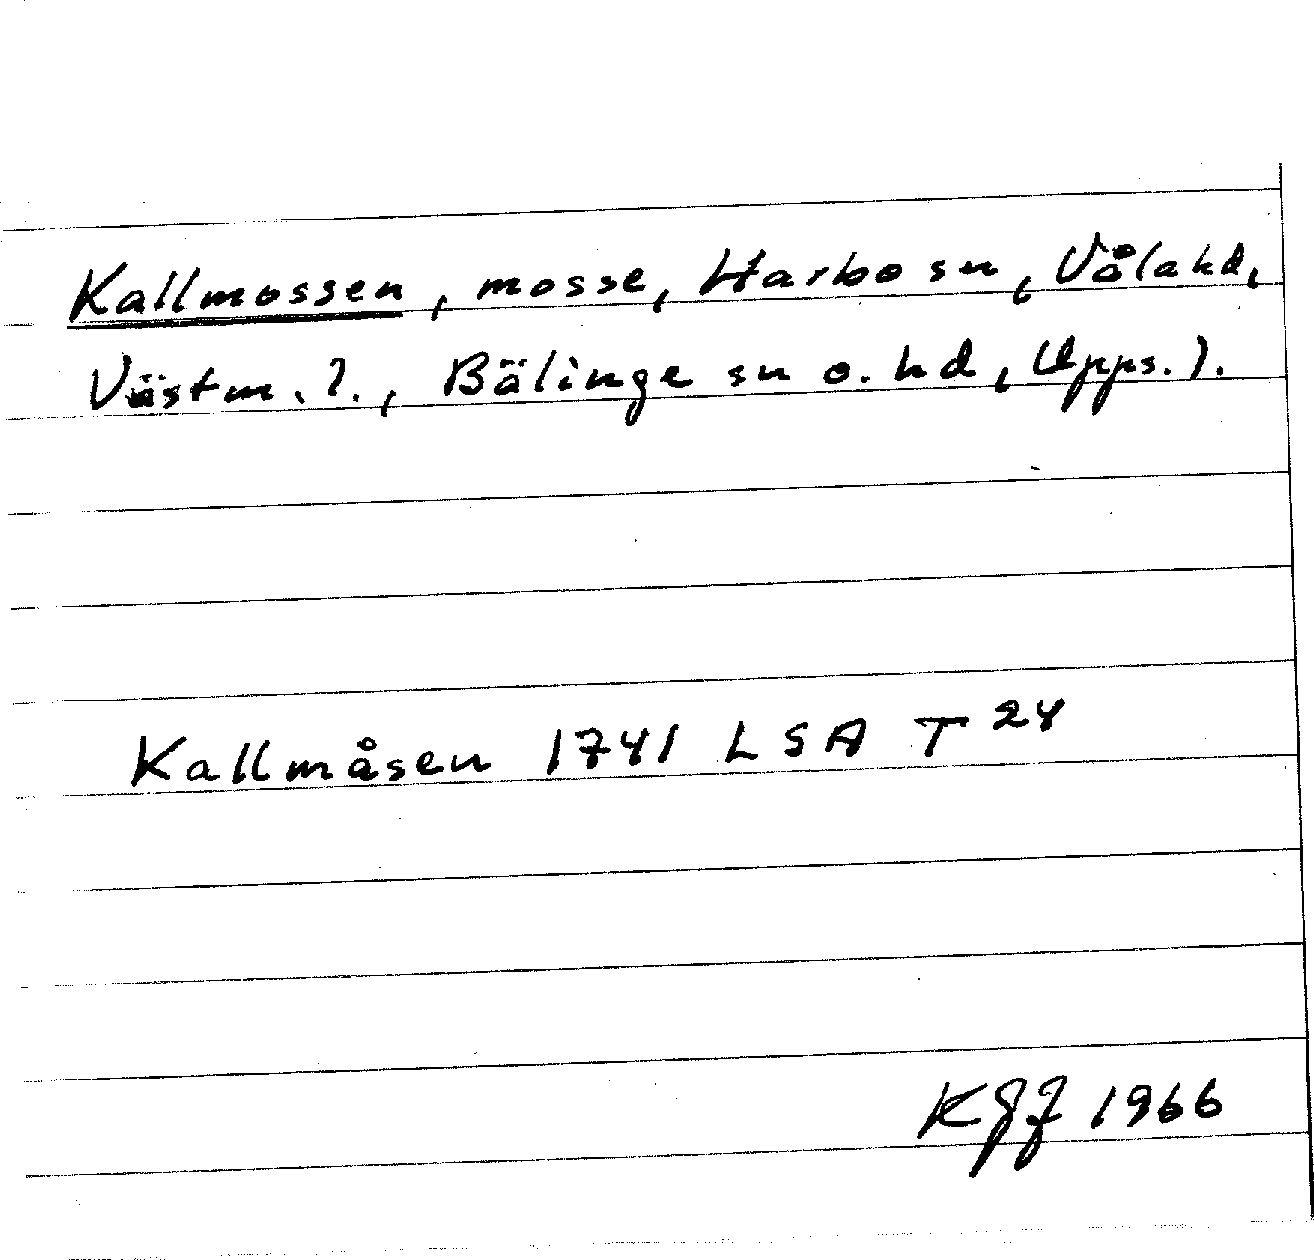 Kallmossen, mosse, Harbo sn (Våla hd,
Västm. l., Bälinge sn o. hd, Upps.).
Kallmåsen 1741 LSA T 24
KGJ 1966